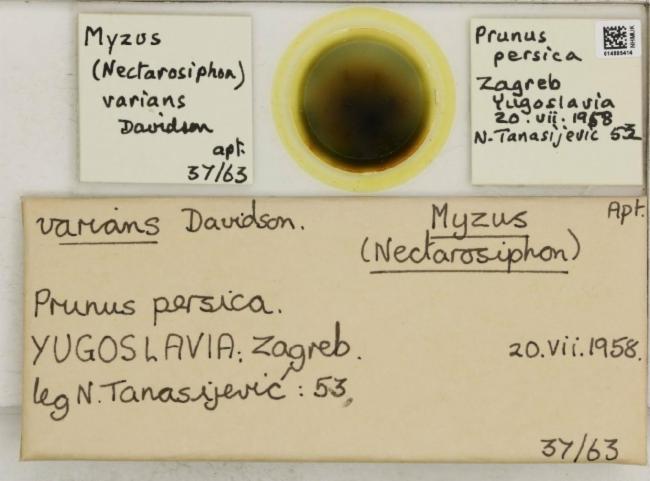 Myzus
(Nectarosiphon)
varians
Davidson
apt.
37/63
Prunus
persica
Zagreb
Yugoslavia
20.vii.1958
N. Tanasijević 53
NHMUK
varians Davidson.
Myzus
(Nectarosiphon)
Apt.
Prunus persica.
YUGOSLAVIA: Zagreb.
20.vii.1958.
leg N. Tanasijević: 53,
37/63